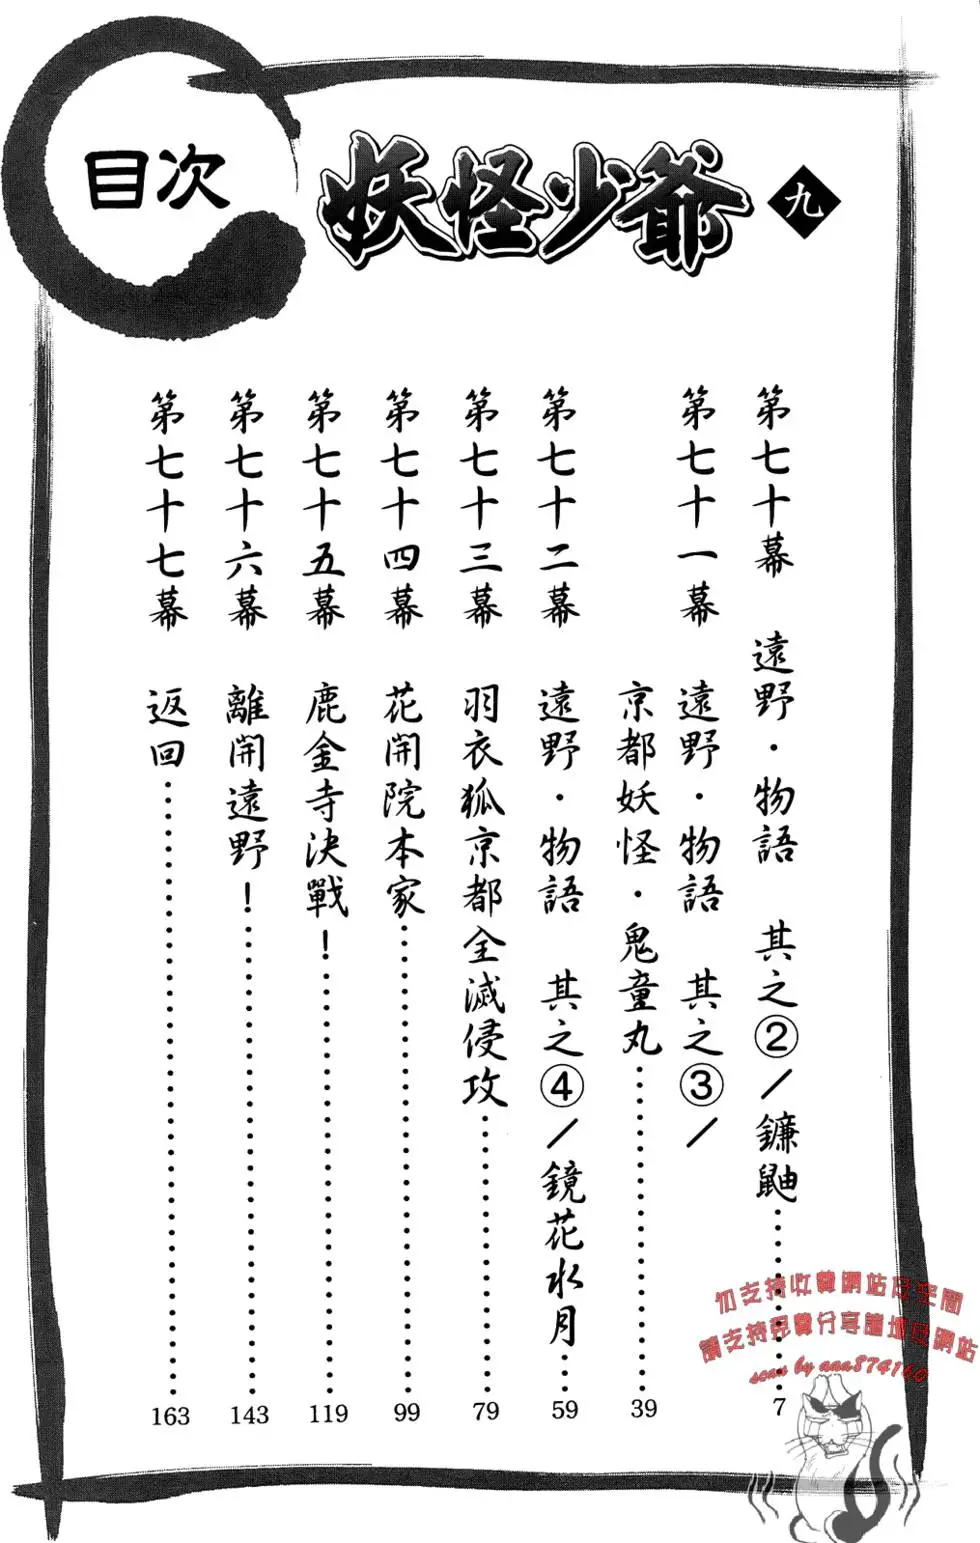 目次
妖怪少爺 九
第七十幕 遠野・物語 其之②／鐮鼬………7
第七十一幕 遠野・物語 其之③／
京都妖怪・鬼童丸………39
第七十二幕 遠野・物語 其之④／鏡花水月…59
第七十三幕 羽衣狐京都全滅侵攻………79
第七十四幕 花開院本家………99
第七十五幕 鹿金寺決戰！………119
第七十六幕 離開遠野！………143
第七十七幕 返回………163
勿支持收費網站及空間
請支持免費分享論壇及網站
scan by aaa874160